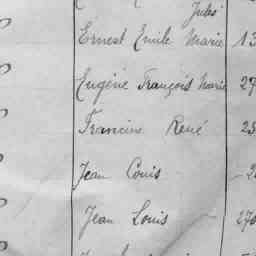 Jules
Ernest Emile Marie 13
Eugène François Marie 27
Francine René 25
Jean Louis
Jean Louis 270